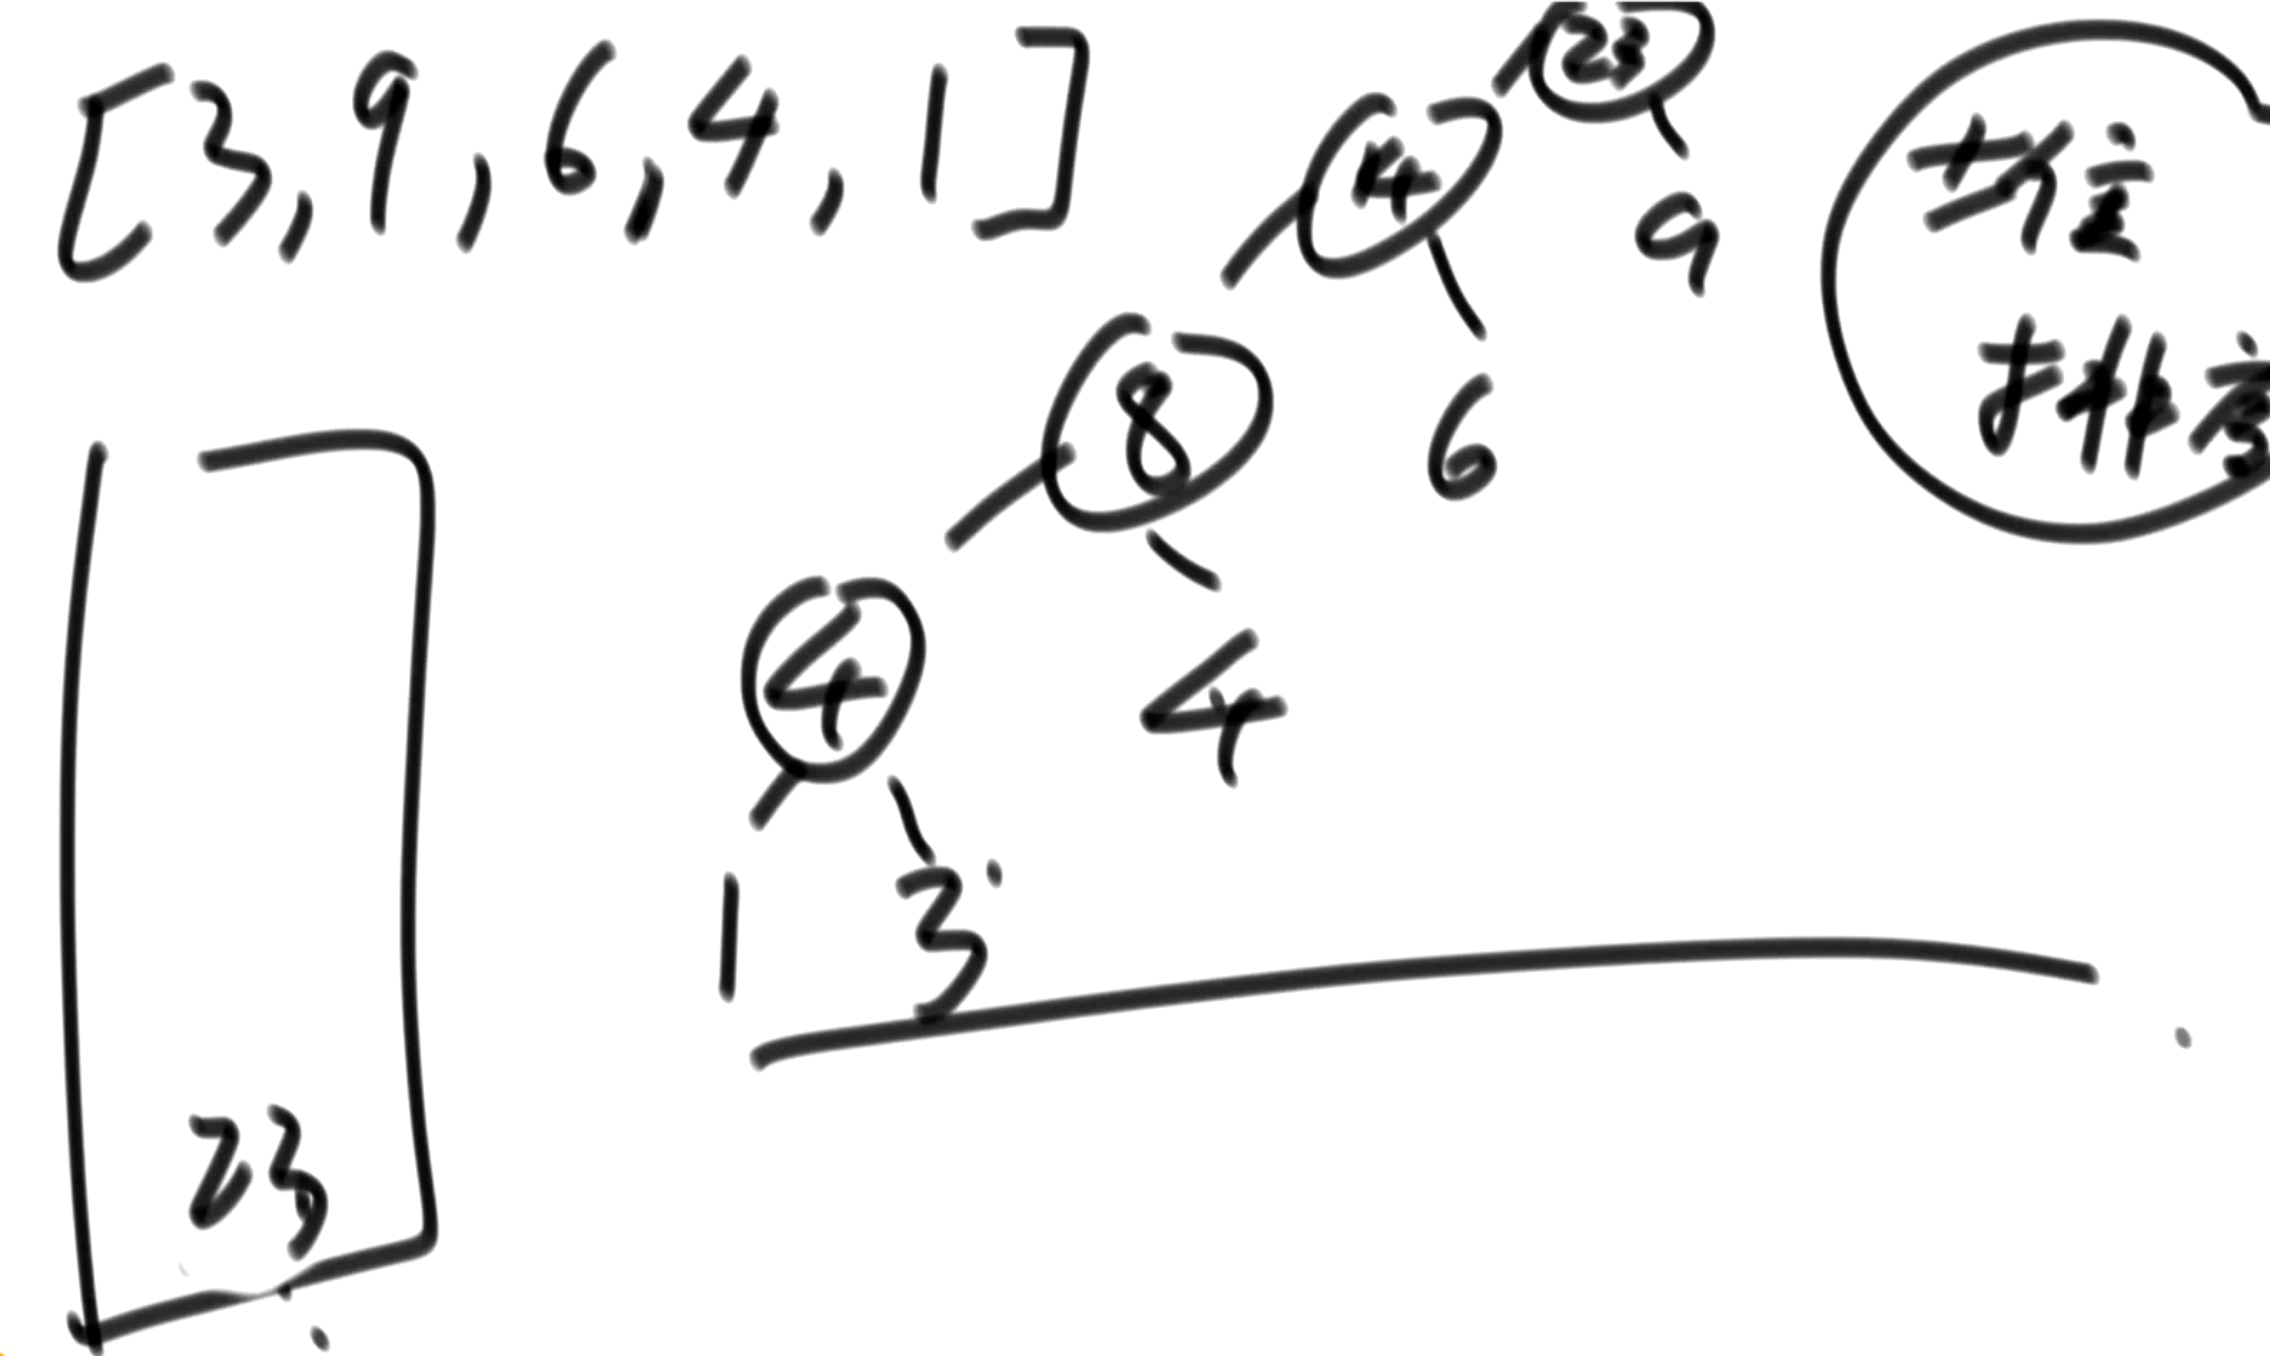 [3,9,6,4,1]
23
14
9
8
6
4
4
1
3
23
堆
排序